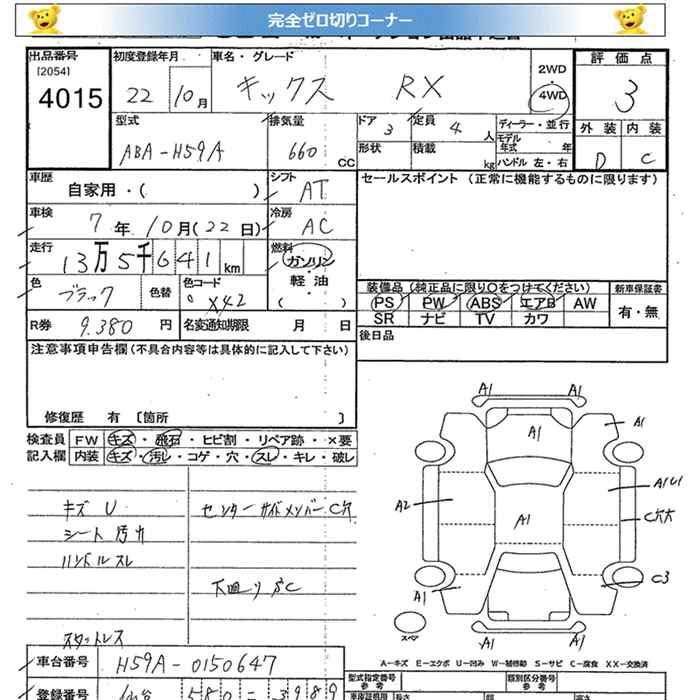 完全ゼロ切りコーナー
出品番号 初度登録年月 車名・グレード 評価点
[2054]
4015 22 10月 キックス RX 2WD・4WD 3
型式 排気量 ドア 3 定員 4 人 ディーラー・並行 外装 内装
ABA-H59A 660 CC 形状 積載 kg モデル年式 年 D C
ハンドル 左・右
車歴 シフト セールスポイント (正常に機能するものに限ります)
自家用・( ) AT
車検 7年10月(22日) 冷房 AC
走行 13万5千641km 燃料 ガソリン・軽油・( )
色 ブラック 色替 色コード X42
装備品 (純正品に限り○をつけてください) 新車保証書
PS PW ABS エアB AW 有・無
SR ナビ TV カワ
R券 9.380円 名変通知期限 月 日 後日品
注意事項申告欄(不具合内容等は具体的に記入して下さい)
修復歴 有 [箇所 ]
検査員 FW キズ・飛石・ヒビ割・リペア跡・×要
記入欄 内装 キズ・汚し・コゲ・穴・スレ・キレ・破レ
キズ U センターサイドメンバー C穴
シート汚れ
ハンドルスレ
下廻り SC
スタットレス
A1 A1
A1 A1
A2 A1 A1U1
C穴大
A1 C3
スペア A1 A1
A-キズ E-エクボ U-凹み W-補修跡 S-サビ C-腐食 XX-交換済
車台番号 H59A-0150647
型式指定番号 参考 類別区分番号 参考
登録番号 580-3989
車庫証明用 長さ 高さ